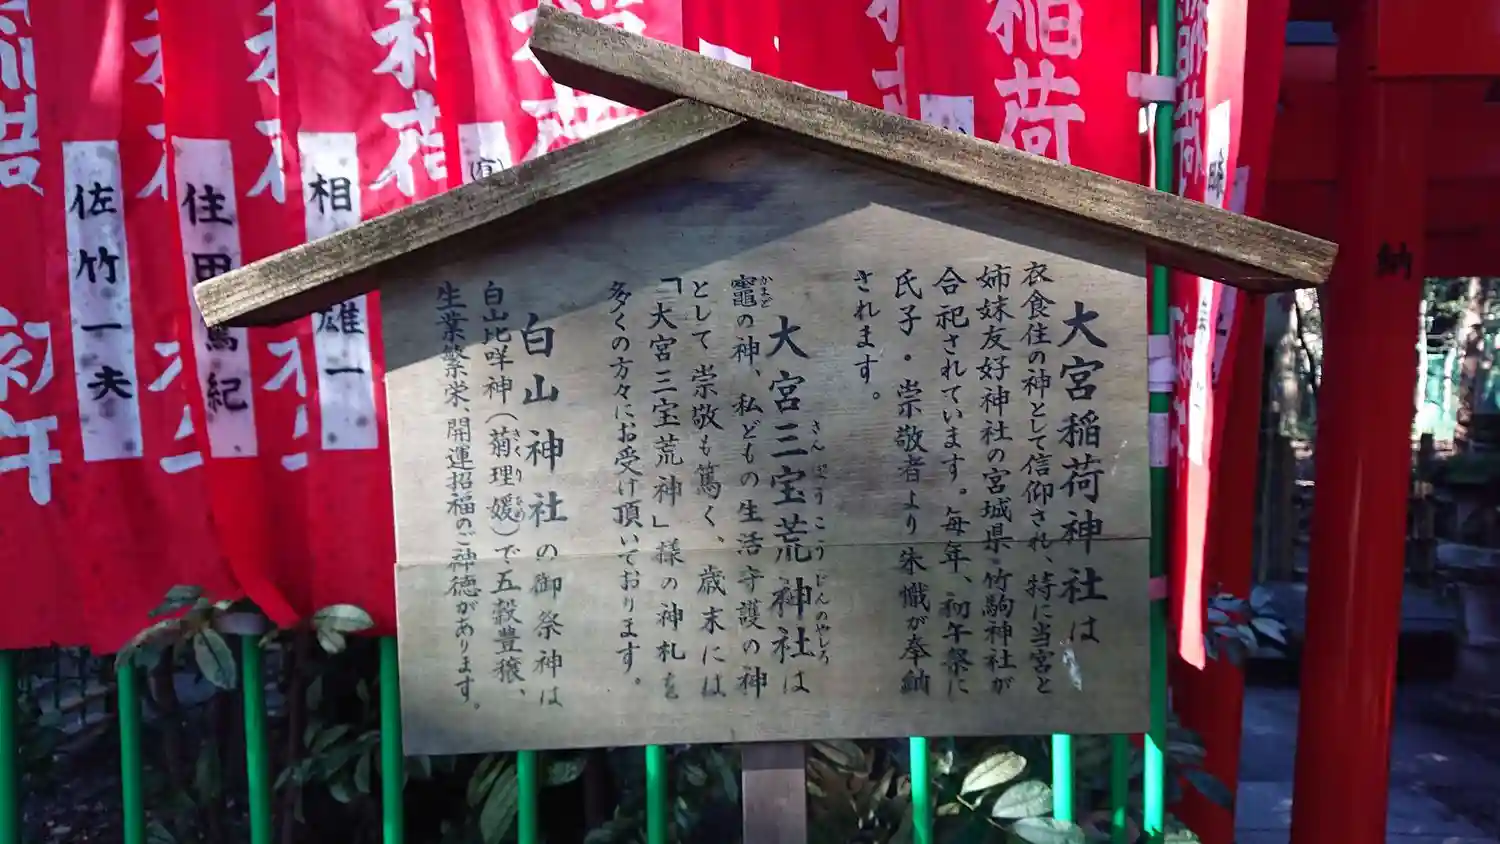 大宮稲荷神社は
衣食住の神として信仰され、特に当宮と
姉妹友好神社の宮城県・竹駒神社が
合祀されています。毎年、初午祭に
氏子・崇敬者より朱幟が奉納
されます。
大宮三宝荒神社は
さんぼうこうじんのやしろ
竈の神、私どもの生活守護の神
かまど
として崇敬も篤く、歳末には
「大宮三宝荒神」様の神札を
多くの方々にお受け頂いております。
白山神社の御祭神は
白山比咩神(菊理媛)で五穀豊穣、
くくりひめ
生業繁栄、開運招福のご神徳があります。
稲荷
稲荷
佐竹一夫
初午
納